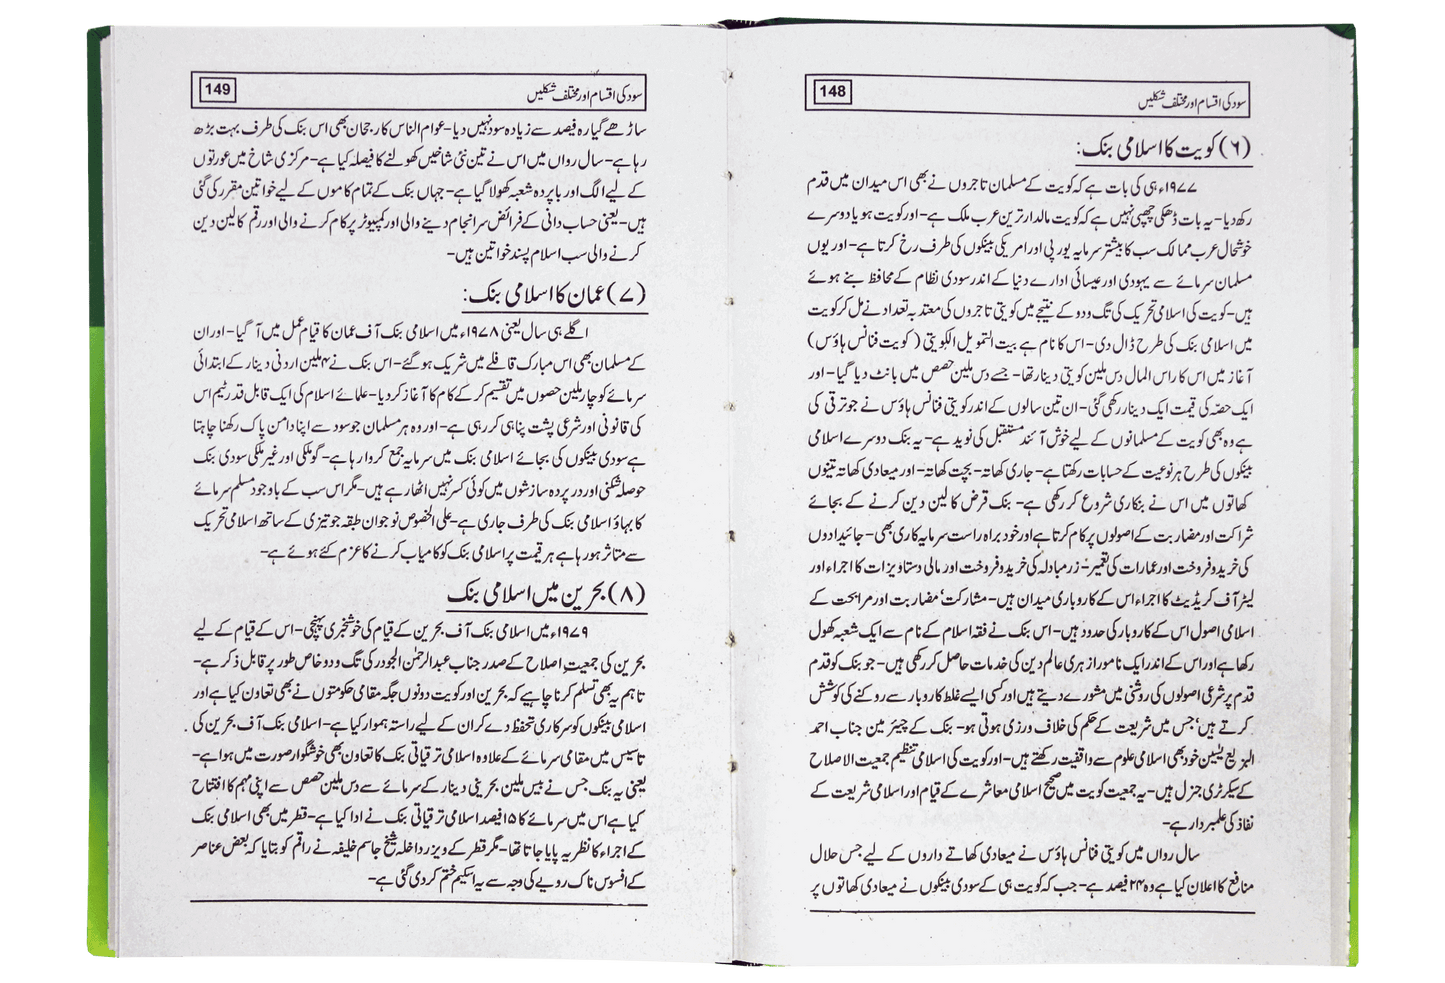 148
سود کی اقسام اور مختلف شکلیں
(۶) کویت کا اسلامی بنک:
۱۹۷۷ء ہی کی بات ہے کہ کویت کے مسلمان تاجروں نے بھی اس میدان میں قدم
رکھ دیا۔ یہ بات ڈھکی چھپی نہیں ہے کہ کویت مالدار ترین عرب ملک ہے۔ اور کویت ہو یا دوسرے
خوشحال عرب ممالک سب کا بیشتر سرمایہ یورپی اور امریکی بینکوں کی طرف رخ کرتا ہے۔ اور یوں
مسلمان سرمائے سے یہودی اور عیسائی ادارے دنیا کے اندر سودی نظام کے محافظ بنے ہوئے
ہیں۔ کویت کی اسلامی تحریک کی تگ و دو کے نتیجے میں کویتی تاجروں کی معتد بہ تعداد نے مل کر کویت
میں اسلامی بنک کی طرح ڈال دی۔ اس کا نام ہے بیت التمویل الکویتی (کویت فنانس ہاؤس)
آغاز میں اس کا راس المال دس ملین کویتی دینار تھا۔ جسے دس ملین حصص میں بانٹ دیا گیا۔ اور
ایک حصّہ کی قیمت ایک دینار رکھی گئی۔ ان تین سالوں کے اندر کویتی فنانس ہاؤس نے جو ترقی کی
ہے وہ بھی کویت کے مسلمانوں کے لیے خوش آئند مستقبل کی نوید ہے۔ یہ بنک دوسرے اسلامی
بینکوں کی طرح ہر نوعیت کے حسابات رکھتا ہے۔ جاری کھاتہ۔ بچت کھاتہ۔ اور میعادی کھاتہ تینوں
کھاتوں میں اس نے بنکاری شروع کر رکھی ہے۔ بنک قرض کا لین دین کرنے کے بجائے
شراکت اور مضاربت کے اصولوں پر کام کرتا ہے اور خود براہ راست سرمایہ کاری بھی۔ جائیدادوں
کی خرید و فروخت اور عمارات کی تعمیر۔ زر مبادلہ کی خرید و فروخت اور مالی دستاویزات کا اجراء اور
لیٹر آف کریڈیٹ کا اجراء اس کے کاروباری میدان ہیں۔ مشارکت' مضاربت اور مرابحت کے
اسلامی اصول اس کے کاروبار کی حدود ہیں۔ اس بنک نے فقہ اسلام کے نام سے ایک شعبہ کھول
رکھا ہے اور اس کے اندر ایک نامور ازہری عالم دین کی خدمات حاصل کر رکھی ہیں۔ جو بنک کو قدم
قدم پر شرعی اصولوں کی روشنی میں مشورے دیتے ہیں اور کسی ایسے غلط کاروبار سے روکنے کی کوشش
کرتے ہیں' جس میں شریعت کے حکم کی خلاف ورزی ہوتی ہو۔ بنک کے چیئر مین جناب احمد
البزیع یٰسین خود بھی اسلامی علوم سے واقفیت رکھتے ہیں۔ اور کویت کی اسلامی تنظیم جمعیت الاصلاح
کے سیکرٹری جنرل ہیں۔ یہ جمعیت کویت میں صحیح اسلامی معاشرے کے قیام اور اسلامی شریعت کے
نفاذ کی علمبردار ہے۔
سال رواں میں کویتی فنانس ہاؤس نے میعادی کھاتے داروں کے لیے جس حلال
منافع کا اعلان کیا ہے وہ ۲۴ فیصد ہے۔ جب کہ کویت ہی کے سودی بینکوں نے میعادی کھاتوں پر
149
سود کی اقسام اور مختلف شکلیں
ساڑھے گیارہ فیصد سے زیادہ سود نہیں دیا۔ عوام الناس کا رجحان بھی اس بنک کی طرف بہت بڑھ
رہا ہے۔ سال رواں میں اس نے تین نئی شاخیں کھولنے کا فیصلہ کیا ہے۔ مرکزی شاخ میں عورتوں
کے لیے الگ اور باپردہ شعبہ کھولا گیا ہے۔ جہاں بنک کے تمام کاموں کے لیے خواتین مقرر کی گئی
ہیں۔ یعنی حساب دانی کے فرائض سرانجام دینے والی اور کمپیوٹر پر کام کرنے والی اور رقم کا لین دین
کرنے والی سب اسلام پسند خواتین ہیں۔
(۷) عمان کا اسلامی بنک:
اگلے ہی سال یعنی ۱۹۷۸ء میں اسلامی بنک آف عمان کا قیام عمل میں آ گیا۔ اور ان
کے مسلمان بھی اس مبارک قافلے میں شریک ہو گئے۔ اس بنک نے ۴ ملین اردنی دینار کے ابتدائی
سرمائے کو چار ملین حصوں میں تقسیم کر کے کام کا آغاز کر دیا۔ علمائے اسلام کی ایک قابل قدر ٹیم اس
کی قانونی اور شرعی پشت پناہی کر رہی ہے۔ اور وہ ہر مسلمان جو سود سے اپنا دامن پاک رکھنا چاہتا
ہے سودی بینکوں کی بجائے اسلامی بنک میں سرمایہ جمع کروا رہا ہے۔ گو ملکی اور غیر ملکی سودی بنک
حوصلہ شکنی اور در پردہ سازشوں میں کوئی کسر نہیں اٹھا رہے ہیں۔ مگر اس سب کے باوجود مسلم سرمائے
کا بہاؤ اسلامی بنک کی طرف جاری ہے۔ علی الخصوص نوجوان طبقہ جو تیزی کے ساتھ اسلامی تحریک
سے متاثر ہو رہا ہے ہر قیمت پر اسلامی بنک کو کامیاب کرنے کا عزم کئے ہوئے ہے۔
(۸) بحرین میں اسلامی بنک
۱۹۷۹ء میں اسلامی بنک آف بحرین کے قیام کی خوشخبری پہنچی۔ اس کے قیام کے لیے
بحرین کی جمعیت اصلاح کے صدر جناب عبدالرحمٰن الجودر کی تگ و دو خاص طور پر قابل ذکر ہے۔
تاہم یہ بھی تسلم کرنا چاہیے کہ بحرین اور کویت دونوں جگہ مقامی حکومتوں نے بھی تعاون کیا ہے اور
اسلامی بینکوں کو سرکاری تحفظ دے کر ان کے لیے راستہ ہموار کیا ہے۔ اسلامی بنک آف بحرین کی
تاسیس میں مقامی سرمائے کے علاوہ اسلامی ترقیاتی بنک کا تعاون بھی خوشگوار صورت میں ہوا ہے۔
یعنی یہ بنک جس نے بیس ملین بحرینی دینار کے سرمائے سے دس ملین حصص سے اپنی مہم کا افتتاح
کیا ہے اس میں سرمائے کا ۱۵ فیصد اسلامی ترقیاتی بنک نے ادا کیا ہے۔ قطر میں بھی اسلامی بنک
کے اجراء کا نظریہ پایا جاتا تھا۔ مگر قطر کے ویزر داخلہ شیخ جاسم خلیفہ نے راقم کو بتایا کہ بعض عناصر
کے افسوس ناک رویے کی وجہ سے یہ اسکیم ختم کر دی گئی ہے۔